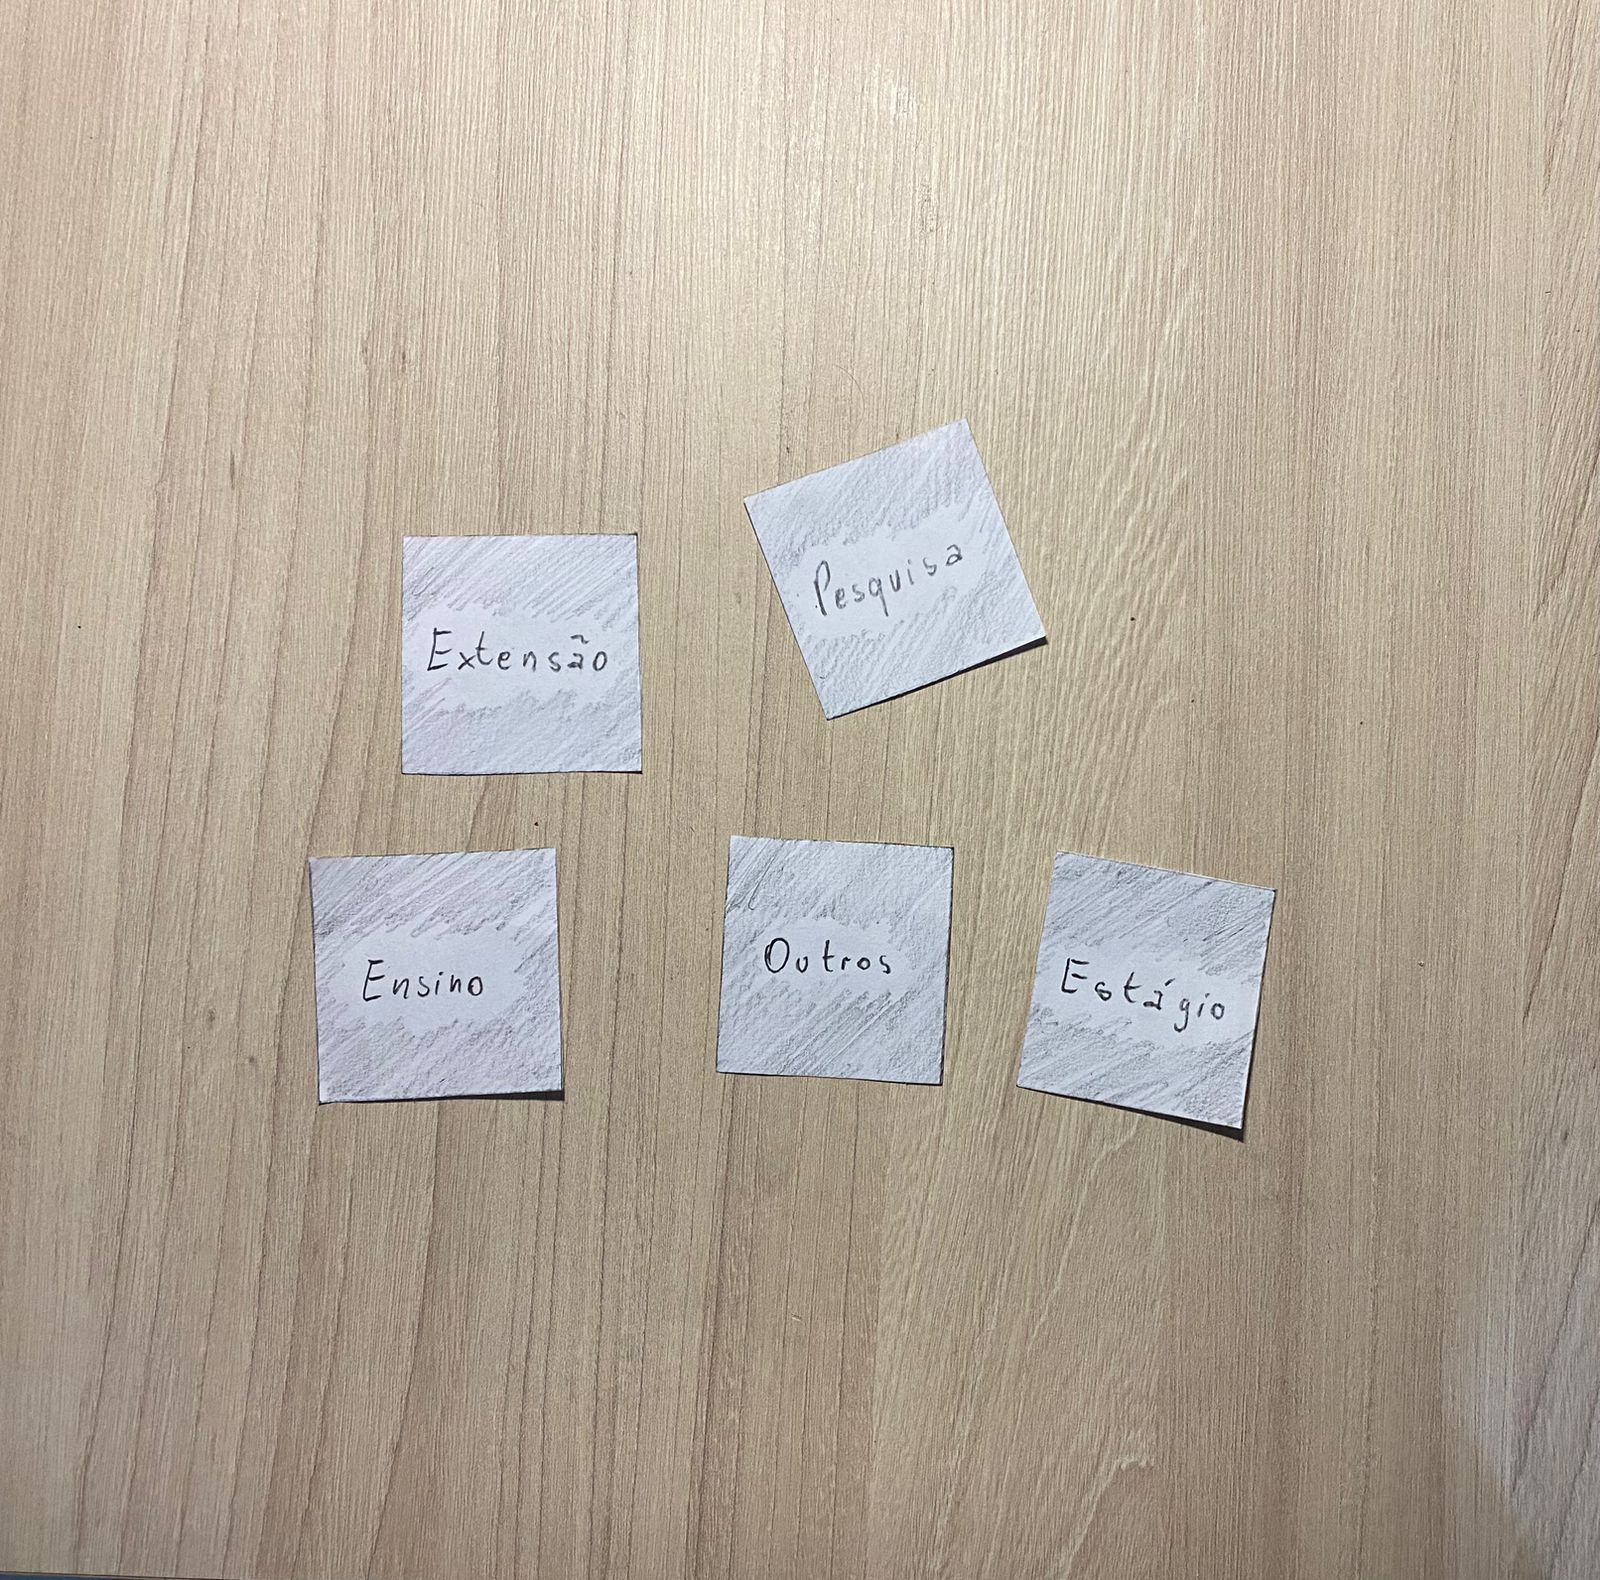 Extensão
Pesquisa
Ensino
Outros
Estágio